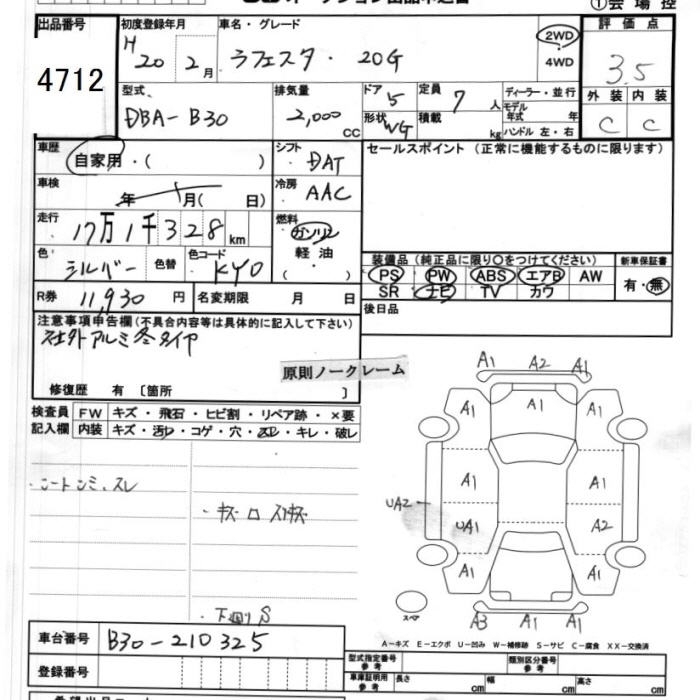 ①会場控
出品番号 初度登録年月 車名・グレード 評価点
4712 H20 2月 ラフェスタ・20G 2WD・4WD 3.5
型式 排気量 ドア 定員 ディーラー・並行 外装 内装
DBA-B30 2,000cc 5 7人 モデル年式 年式 C C
形状 WG 積載 kg ハンドル 左・右
車歴 シフト セールスポイント(正常に機能するものに限ります)
自家用・( ) DAT
車検 年 月( 日) 冷房 AAC
走行 17万1千328km 燃料 ガソリン 軽油 ( )
装備品(純正品に限り○をつけてください) 新車保証書
色 シルバー 色替 色コード KY0
PS PW ABS エアB AW 有・無
SR ナビ TV カワ
R券 11,930円 名変期限 月 日 後日品
注意事項申告欄(不具合内容等は具体的に記入して下さい)
社外アルミ冬タイヤ
原則ノークレーム
修復歴 有〔箇所 〕
検査員記入欄 FW キズ・飛石・ヒビ割・リペア跡・×要
内装 キズ・汚レ・コゲ・穴・スレ・キレ・破レ
A1 A2 A1
A1 A1 A1
A1 A1
UA2 UA1 A2
A1 A1
A3 A1 A1
スペア
・下回りS
A-キズ E-エクボ U-凹み W-補修跡 S-サビ C-腐食 XX-交換済
車台番号 B30-210325
型式指定番号 参考 類別区分番号 参考
登録番号
車庫証明用 参考 長さ cm 幅 cm 高さ cm